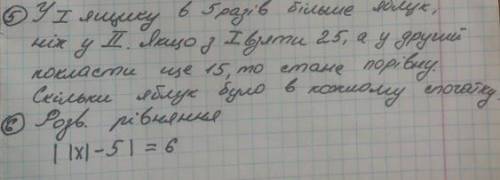 5 У I ящику в 5 разів більше яблук,
ніж у II. Якщо з I взяти 25, а у другий
покласти ще 15, то стане порівну.
Скільки яблук було в кожному спочатку
6 Розв. рівняння
||x|-5|=6